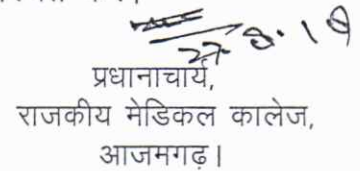 27.8.19
प्रधानाचार्य,
राजकीय मेडिकल कालेज,
आजमगढ़।